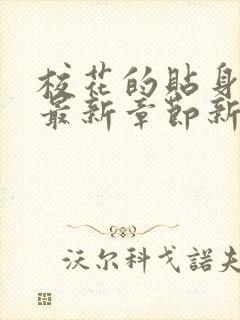 校花的貼身
最新章節新
沃尔科戈諾夫